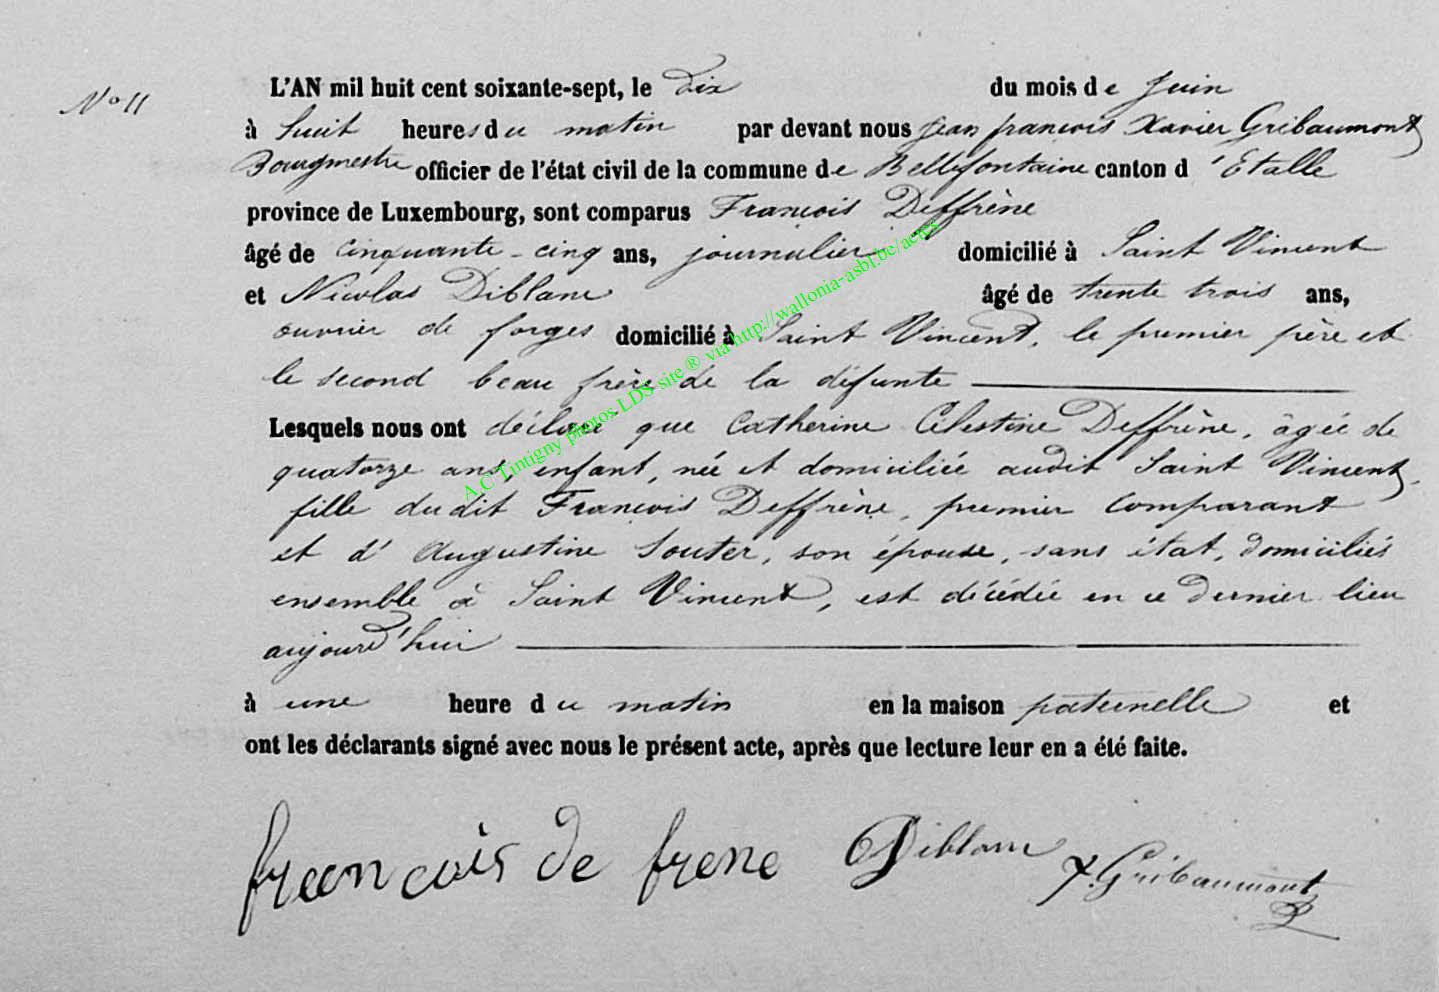 N° 11
L'AN mil huit cent soixante-sept, le Dix du mois de Juin
à huit heures du matin par devant nous Jean françois Xavier Gribaumont
Bourgmestre officier de l'état civil de la commune de Bellefontaine canton d'Etalle
province de Luxembourg, sont comparus François Deffrène
âgé de cinquante-cinq ans, journalier domicilié à Saint Vincent
et Nicolas Diblanc âgé de trente trois ans,
ouvrier de forges domicilié à Saint Vincent, le premier père et
le second beau frère de la défunte
Lesquels nous ont déclaré que Catherine Célestine Deffrène, âgée de
quatorze ans, enfant, née et domiciliée audit Saint Vincent,
fille dudit François Deffrène, premier comparant
et d'Augustine Souter, son épouse, sans état, domiciliés
ensemble à Saint Vincent, est décédée en ce dernier lieu
aujourd'hui
à une heure du matin en la maison paternelle et
ont les déclarants signé avec nous le présent acte, après que lecture leur en a été faite.
francois de frene Diblanc F. Gribaumont
A.C Tintigny photos LDS site ® via http://wallonia-asbl.be/actes